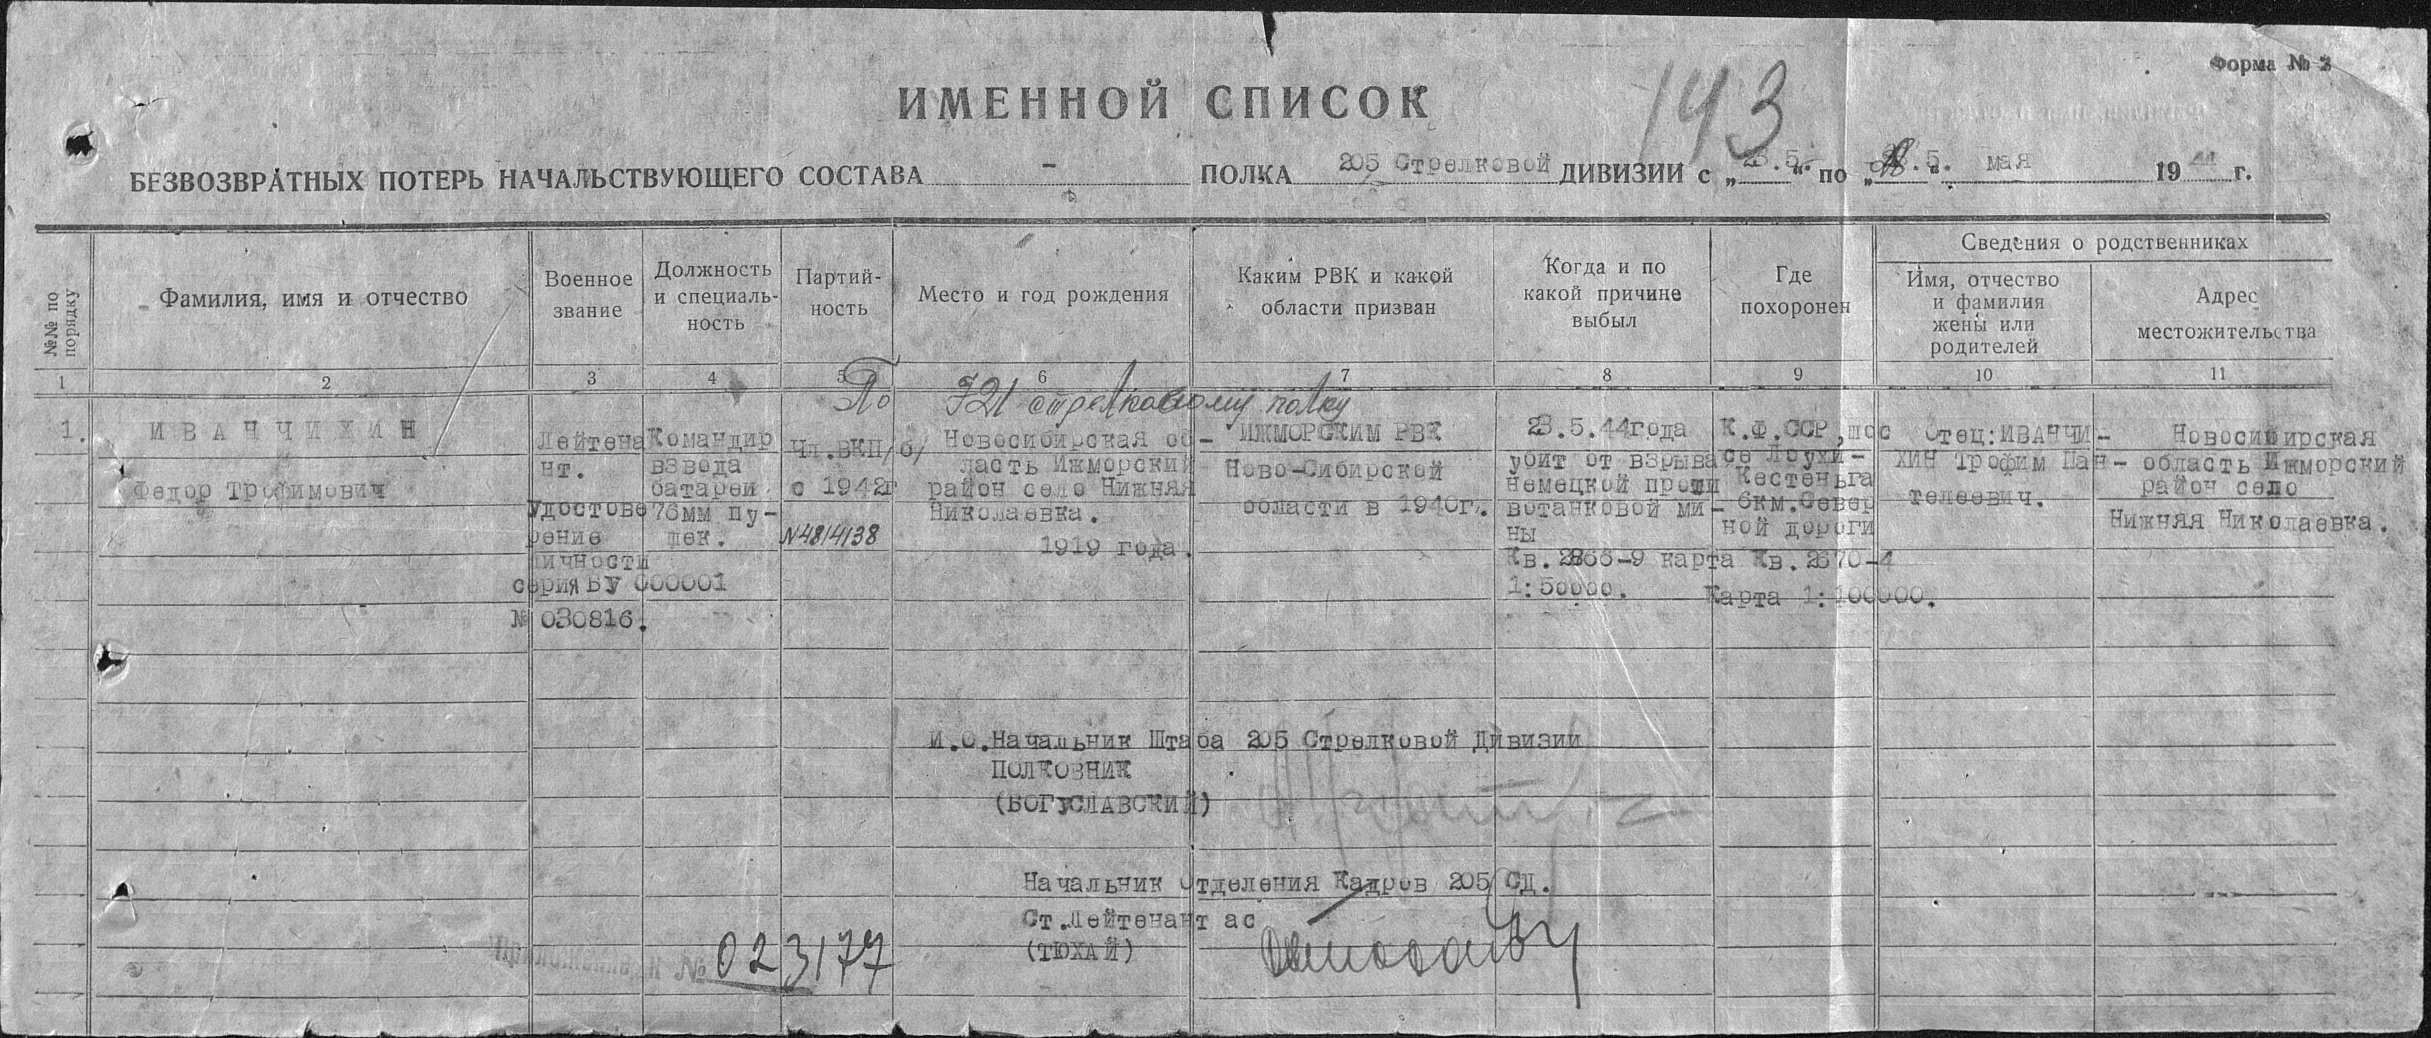 Форма № 2
ИМЕННОЙ СПИСОК
143
БЕЗВОЗВРАТНЫХ ПОТЕРЬ НАЧАЛЬСТВУЮЩЕГО СОСТАВА - ПОЛКА 205 Стрелковой ДИВИЗИИ с „23.5.“ по „23.5.“ мая 1944 г.
№№ по порядку
Фамилия, имя и отчество
Военное
звание
Должность
и специаль-
ность
Партий-
ность
Место и год рождения
Каким РВК и какой
области призван
Когда и по
какой причине
выбыл
Где
похоронен
Сведения о родственниках
Имя, отчество
и фамилия
жены или
родителей
Адрес
местожительства
1 2 3 4 5 6 7 8 9 10 11
По 721 стрелковому полку
1.
ИВАНЧИХИН
Федор Трофимович
Лейтена
нт.
Удостове
рение
личности
серия БУ 000001
№ 030816.
Командир
взвода
батареи
76мм пу-
шек.
Чл.ВКП/б/
с 1942г
№4814138
Новосибирская об-
ласть Ижморский
район село Нижняя
Николаевка.
1919 года.
ИЖМОРСКИМ РВК
Ново-Сибирской
области в 1940г.
23.5.44года
убит от взрыва
немецкой проти
вотанковой ми-
ны
Кв.2866-9 карта
1:50000.
К.Ф.ССР,шос
се Лоухи-
Кестеньга
6км.Север
ной дороги
Кв.2670-4
Карта 1:100000.
Отец:ИВАНЧИ-
ХИН Трофим Пан-
телеевич.
Новосибирская
область Ижморский
район село
Нижняя Николаевка.
И.О.Начальник Штаба 205 Стрелковой Дивизии
ПОЛКОВНИК
(БОГУСЛАВСКИЙ)
Начальник Отделения Кадров 205 СД.
Ст.Лейтенант ас
(ТЮХАЙ)
№ 023177